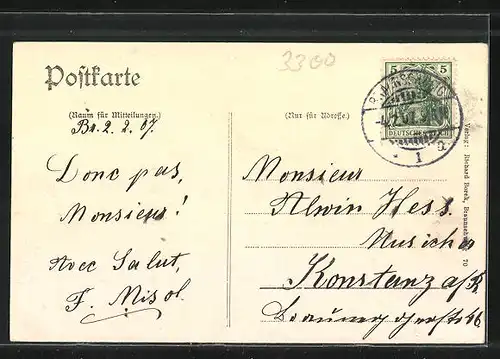 3300
Postkarte
5 5
BRAUNSCHWEIG
DEUTSCHES REICH
1
(Raum für Mitteilungen.)
(Nur für Adresse.)
Br. 2. 2. 07.
Donc pas,
Monsieur!
Avec Salut,
F. Misol.
Monsieur
Alwin Hess.
Musicien
Konstanz a/R.
Verlag: Richard Borek, Braunschweig. 70